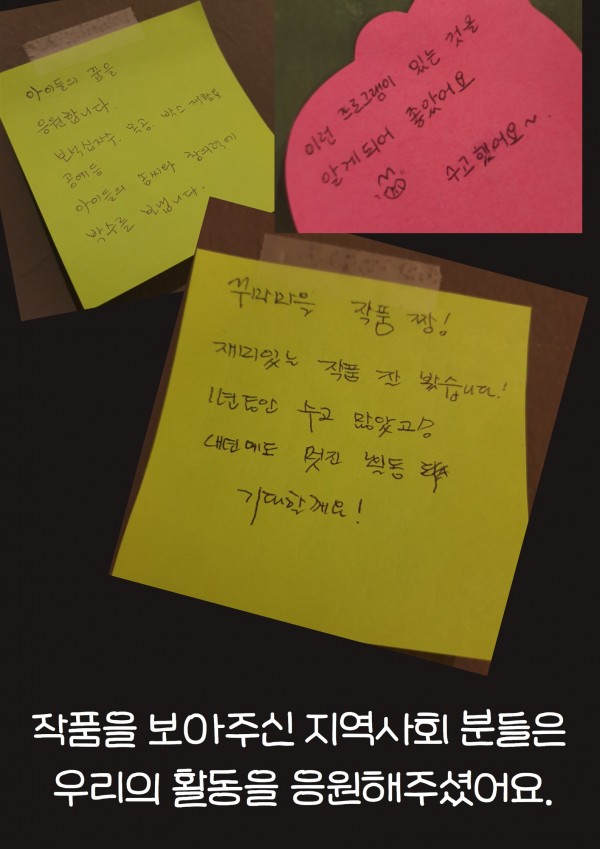 아이들의 꿈을
응원합니다.
보석십자수, 목공, 박스 재활용
공예 등
아이들의 솜씨와 창의력에
박수를 보냅니다.
이런 프로그램이 있는 것을
알게되어 좋았어요
수고했어요~
작품 짱!
재미있는 작품 잘 봤습니다!
1년동안 수고 많았고요
내년에도 멋진 활동
기대할께요!
작품을 보아주신 지역사회 분들은
우리의 활동을 응원해주셨어요.